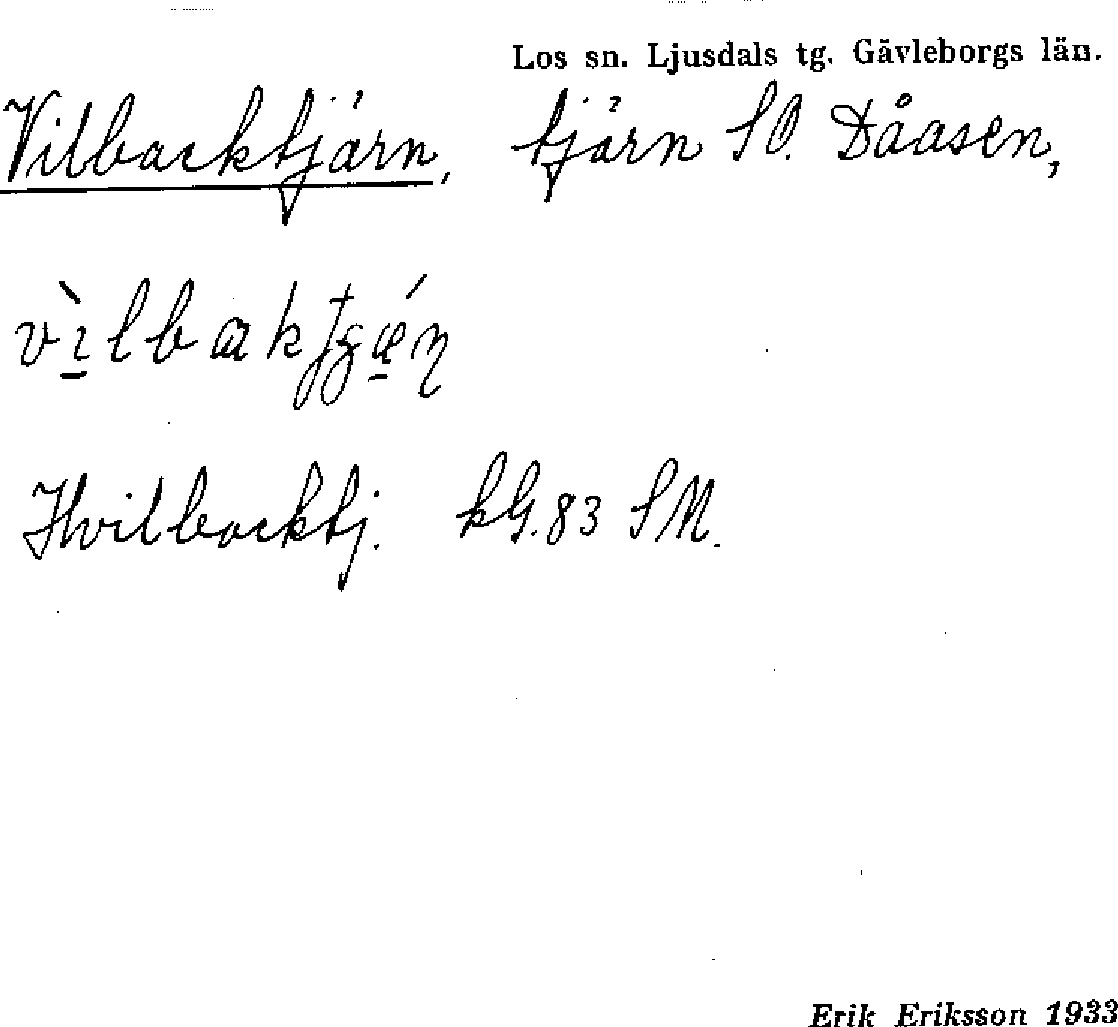 Los sn. Ljusdals tg. Gävleborgs län.
Vilbacktjärn, tjärn SO. Dåasen,
Hvilbacktj. kG. 83 SM.
Erik Eriksson 1933